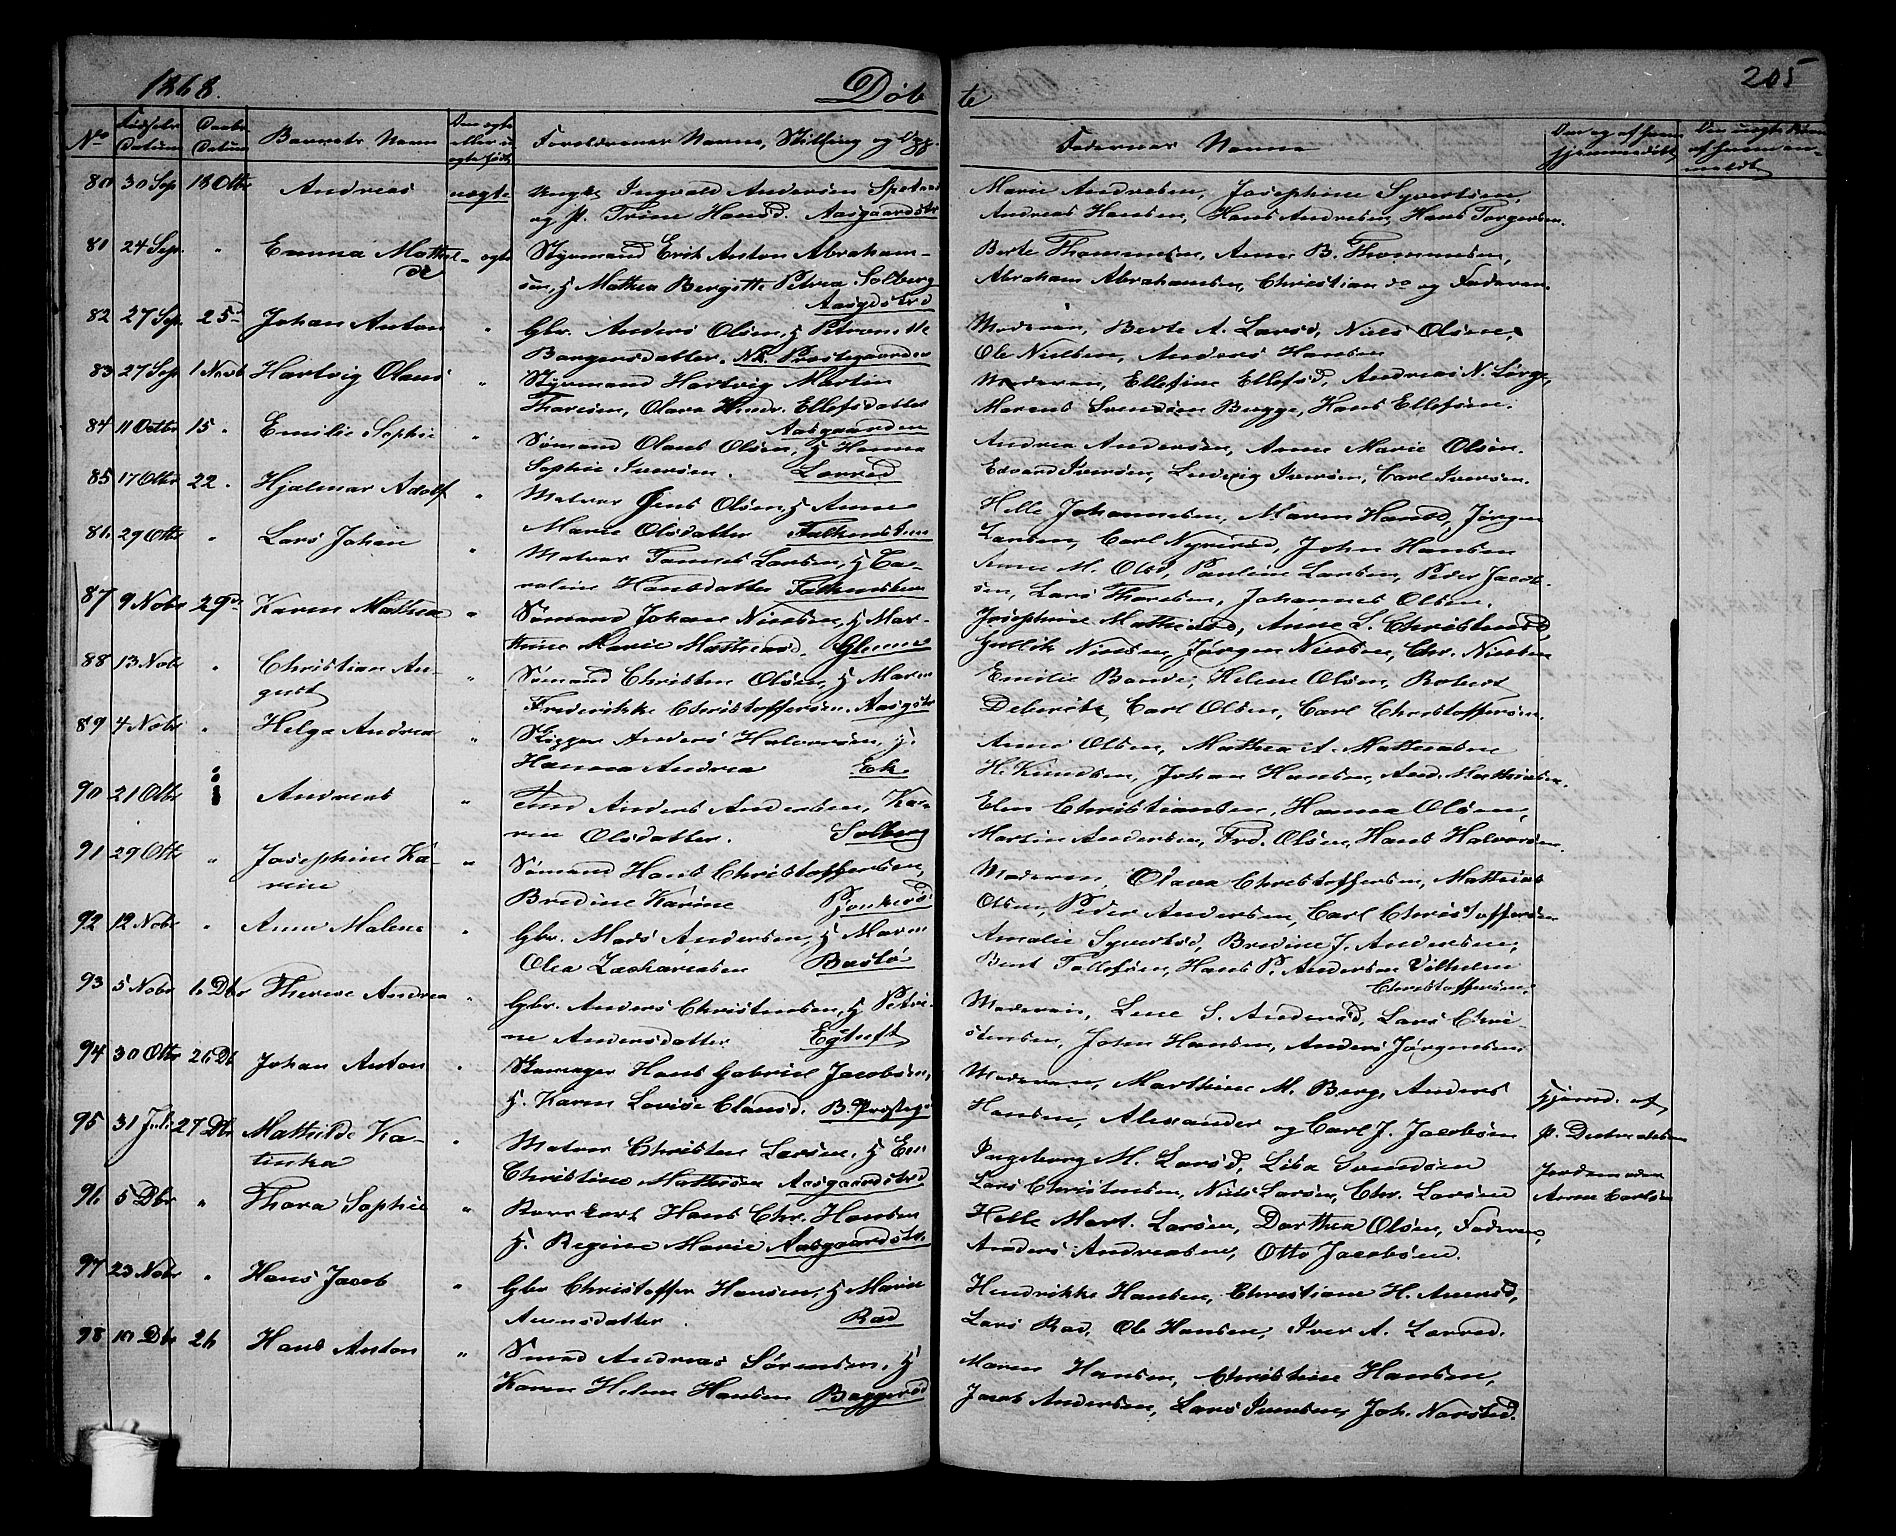 1868.
Döb
te
205
No
Fødsels Datum
Daabs Datum
Barnets Navn
Om ægte eller uægte født
Forældrenes Navne, Stilling og
Faddernes Navne
80 30 Sep 18 Otbr Andreas uægte Ungk. Ingvald Andersen
og p. Trine Hansd. Aasgaardstr
Marie Andresen, Josephine Syvertsen,
Andreas Hansen, Hans Andresen, Hans Torgersen.
81 24 Sep. " Emma Mathil- ægte Styrmand Erik Anton Abraham-
de sen, H Mathea Bergitte Petrea Solberg
Aasgdstrd
Berte Thommesen, Anne B. Thommesen,
Abraham Abrahamsen, Christian do og Faderen.
82 27 Sep. 25d Johan Anton " Gbr. Anders Olsen, H Petronelle
Borgersdatter. N. Præstegaarden
Moderen, Berte A. Larsd, Niels Olsen,
Ole Nielsen, Anders Hansen
83 27 Sep 1 Novb Hartvig Olaus " Styrmand Hartvig Martin
Thoresen, Olava Hendr. Ellefsdatter
Aasgaarden
Moderen, Ellefine Ellefsd, Andreas N. Lørge,
Marens Svendsen Bugge, Hans Ellefsen.
84 11 Octbr 15 " Emilie Sophie " Sømand Olaus Olsen, H Hanna
Sophie Iversen. Lorred
Andrea Andersen, Anne Marie Olsen.
Edvard Iversen, Ludvig Iversen, Carl Iversen.
85 17 Otbr 22 " Hjalmar Adolf " Matros Jens Olsen, H Anne
Marie Olsdatter Falkensten
Helle Johannesen, Maren Hansd, Jørgen
Larsen, Carl Nyrerød, John Hansen
86. 29 Otbr " Lars Johan " Matros Tønnes Larsen, H Ca-
roline Hansdatter Falkensten
Anne M. Olsd, Pauline Larsen, Peder Jacob-
sen, Lars Thoresen, Johannes Olsen.
87 9 Nobr 29d. Karen Mathea " Sømand Johan Nielsen, H Mar-
thine Marie Mathiasd. Glenne
Josephine Mathiasd, Anne L. Christensd,
Gullik Nielsen, Jørgen Nielsen, Chr. Nielsen
88 13 Nobr " Christian Au- " Sømand Christen Olsen, H Maren
gust Frederikke Christoffersen. Aasgstr
Emilie Bande, Helene Olsen, Robert
Deberitz, Carl Olsen, Carl Christoffersen.
89 4 Nobr " Helga Andrea " Skipper Anders Halvorsen, H.
Hanna Andrea Ek.
Anne Olsen, Mathea A. Mathiasen
H. Knudsen, Johan Hansen, And. Mathiasen.
90 21 Otbr Andreas " Tim Anders Andersen, Ka-
ren Olsdatter. Solberg
Elen Christiansen, Hanna Olsen,
Martin Andersen, Frd. Olsen, Hans Halvorsen.
91 29 Otbr " Josephine Ka- " Sømand Hans Christoffersen,
rine Bredine Karine
Moderen, Olava Christoffersen, Mathias
Olsen, Peder Andersen, Carl Christoffersen
92 12 Nobr " Anne Malene " Gbr. Mads Andersen, H Maren
Olea Zachariasen Bastø
Amalie Syvertsd, Bredine J. Andersen,
Bent Tollefsen, Hans P. Andersen Vilhelm
Christoffersen.
93 5 Nobr 6 Dbr Therese Andrea " Gbr. Anders Christensen, H Petri-
ne Andersdatter
Moderen, Lene S. Andersd, Lars Chri-
stensen, John Hansen, Anders Jørgensen
94 30 Otbr 26 Db Johan Anton " Skomager Hans Gabriel Jacobsen,
H. Karen Lovise Clausd. B. Præsteg.
Moderen, Marthine M. Berg, Anders
Hansen, Alexander og Carl J. Jacobsen
95 31 Juli 27 Dbr Mathilde Ka- " Matros Christen Larsen, H Eva
tinka Christine Mathisen Aasgaardstrd
Ingeborg M. Larsd, Lisa Svendsen
Lars Christensen, Niels Larsen, Chr. Larsen
Hjemd. af
Jordemoder
Anne Carlsen
96. 5 Dbr " Thora Sophie " Hans Chr. Hansen
H. Regine Marie Aasgaardstr.
Helle Mart. Larsen, Dorthea Olsen, Faderen,
Anders Andreasen, Otto Jacobsen.
97 23 Nobr " Hans Jacob " Gbr Christoffer Hansen, H Maren
Rad
Hendrikke Hansen, Christiane H. Aversd,
Lars Rad, Ole Hansen, Iver A. Lorred.
98 10 Dbr 26 Hans Anton " Smed Andreas Sørensen, H
Karen Helene Hansen Baggerød
Maren Hansen, Christine Hansen,
Jacob Andersen, Lars Iversen, Joh. Norsted.